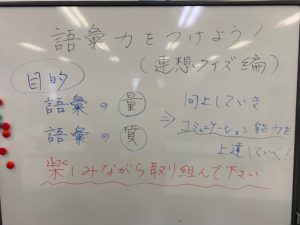 語彙力をつけよう!
(連想クイズ編)
目的
語彙の量
語彙の質
向上していき
⇒コミュニケーション能力を
上達していく!
楽しみながら取り組んで下さい